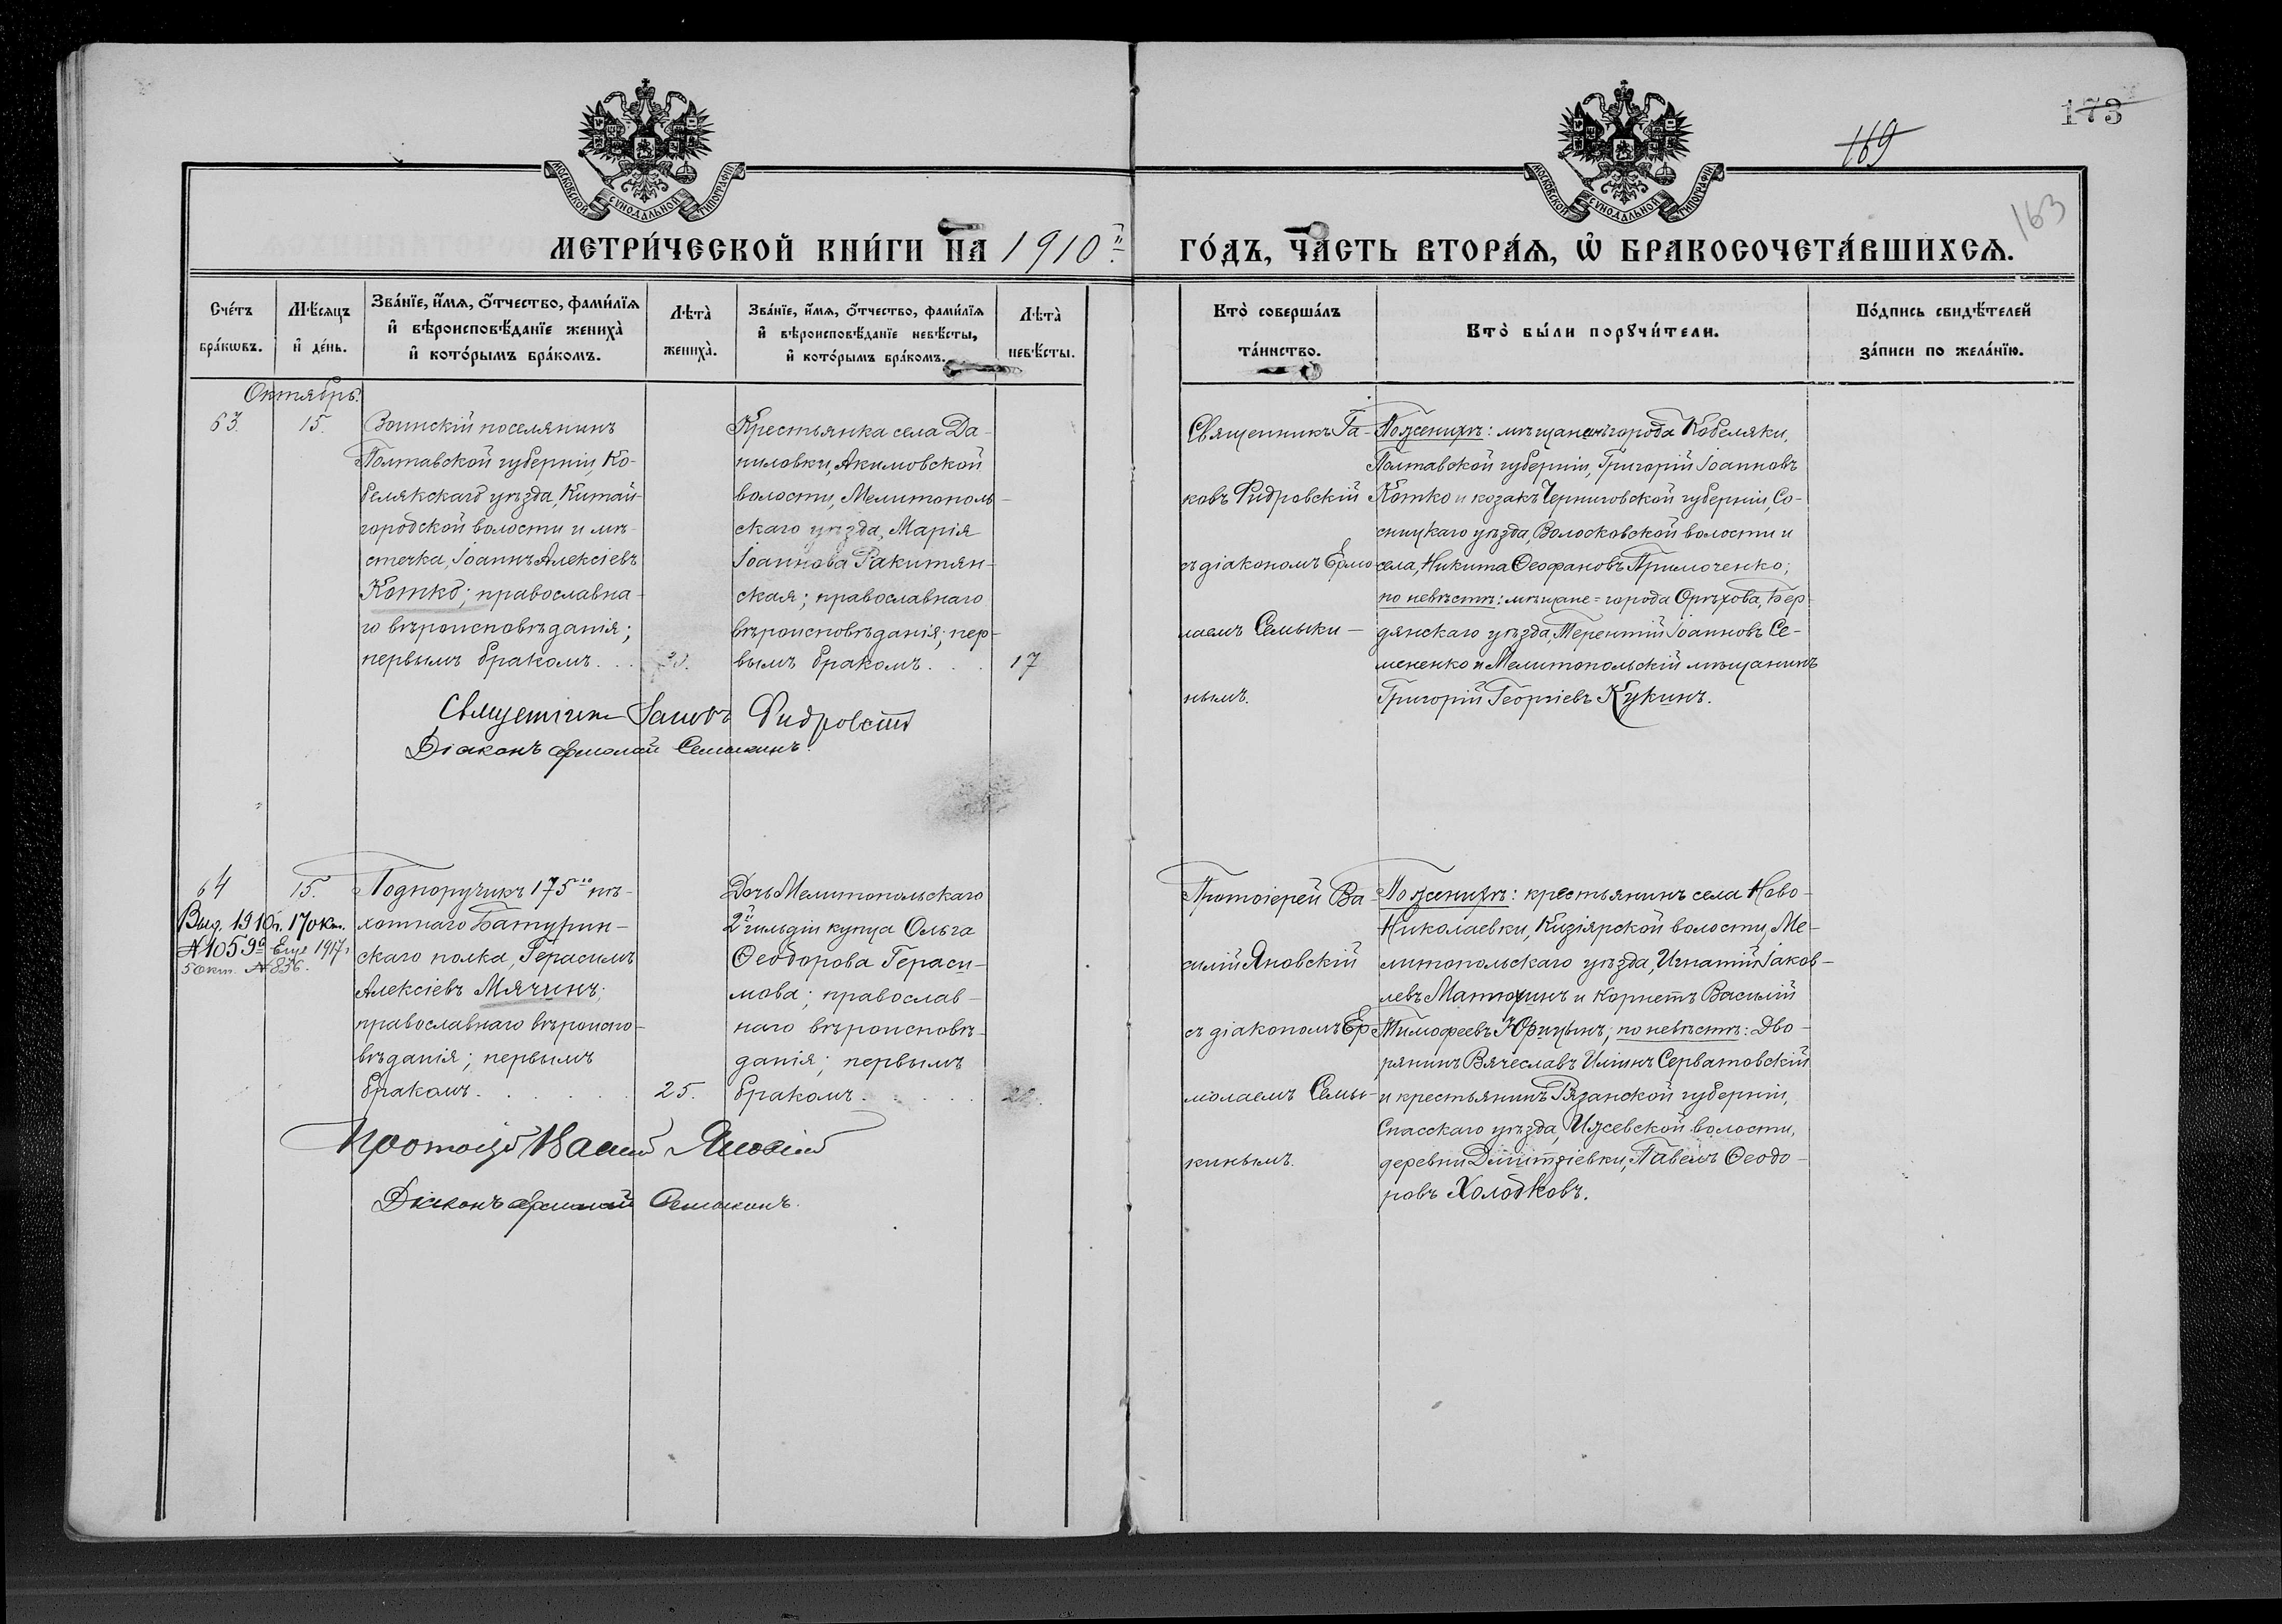 173
169
163
МОСКОВСКОЙ СѴНОДАЛЬНОЙ ТИПОГРАФІИ
МОСКОВСКОЙ СѴНОДАЛЬНОЙ ТИПОГРАФІИ
МЕТРИ́ЧЕСКОЙ КНИ́ГИ НА 1910й
ГО́ДЪ, ЧА́СТЬ ВТОРА́Ѧ, Ѡ҆ БРАКОСОЧЕТА́ВШИХСѦ.
Сче́тъ бра́кѡвъ.
Мѣ́сѧцъ и҆ де́нь.
Зва́нїе, и҆́мѧ, ѻ҆́тчество, фами́лїѧ и҆ вѣроисповѣ́данїе жениха̀ и҆ кото́рымъ бра́комъ.
Лѣта̀ жениха̀.
Зва́нїе, и҆́мѧ, ѻ҆́тчество, фами́лїѧ и҆ вѣроисповѣ́данїе невѣ́сты, и҆ кото́рымъ бра́комъ.
Лѣта̀ невѣ́сты.
Кто̀ соверша́лъ та́инство.
Кто̀ бы́ли порꙋчи́тели.
По́дпись свидѣ́телей за́писи по жела́нїю.
Октябрь.
63.
15.
Воинскій поселянинъ
Полтавской губерніи, Ко-
белякскаго уѣзда, Китай-
городской волости и мѣ-
стечка, Іоаннъ Алексіевъ
Котко; православна-
го вѣроисповѣданія;
первымъ бракомъ. . .
Крестьянка села Да-
ниловки, Акимовской
волости, Мелитополь-
скаго уѣзда, Марія
Іоаннова Ракитян-
ская; православнаго
вѣроисповѣданія; пер-
вымъ бракомъ. . .
17
Священникъ Іа-
ковъ Фидровскій
съ діакономъ Ермо-
лаемъ Семыки-
нымъ.
По женихѣ: мѣщанинъ города Кобеляки,
Полтавской губерніи, Григорій Іоанновъ
Котко и козакъ Черниговской губерніи, Со-
сницкаго уѣзда, Волосковской волости и
села, Никита Ѳеофановъ Примоченко;
по невѣстѣ: мѣщане = города Орѣхова, Бер-
дянскаго уѣзда, Терентій Іоанновъ Се-
мененко и Мелитопольскій мѣщанинъ
Григорій Георгіевъ Кукинъ.
Священникъ Іаковъ Фидровскій
Діаконъ Ермолай Семыкинъ.
64
15.
Выд. 1910г. 17 окт.
№1059й Еще 1917г.
5 окт. №836.
Подпоручикъ 175го пѣ-
хотнаго Батурин-
скаго полка, Герасимъ
Алексіевъ Мячинъ;
православнаго вѣроиспо-
вѣданія; первымъ
бракомъ. . . . . .
25.
Дочь Мелитопольскаго
2й гильдіи купца Ольга
Ѳеодорова Гераси-
мова; православ-
наго вѣроисповѣ-
данія; первымъ
бракомъ. . . . .
Протоіерей Ва-
силій Яновскій
съ діакономъ Ер-
молаемъ Семы-
кинымъ.
По женихѣ: крестьянинъ села Ново-
Николаевки, Кизіярской волости, Ме-
литопольскаго уѣзда, Игнатій Іаков-
левъ Матюхинъ и корнетъ Василій
Тимофеевъ Юрицынъ; по невѣстѣ: Дво-
рянинъ Вячеславъ Иліинъ Серватовскій
и крестьянинъ Рязанской губерніи,
Спасскаго уѣзда, Ижевской волости,
деревни Димитріевки, Павелъ Ѳеодо-
ровъ Холодковъ.
Протоіерей Василій Яновскій
Діаконъ Ермолай Семыкинъ.